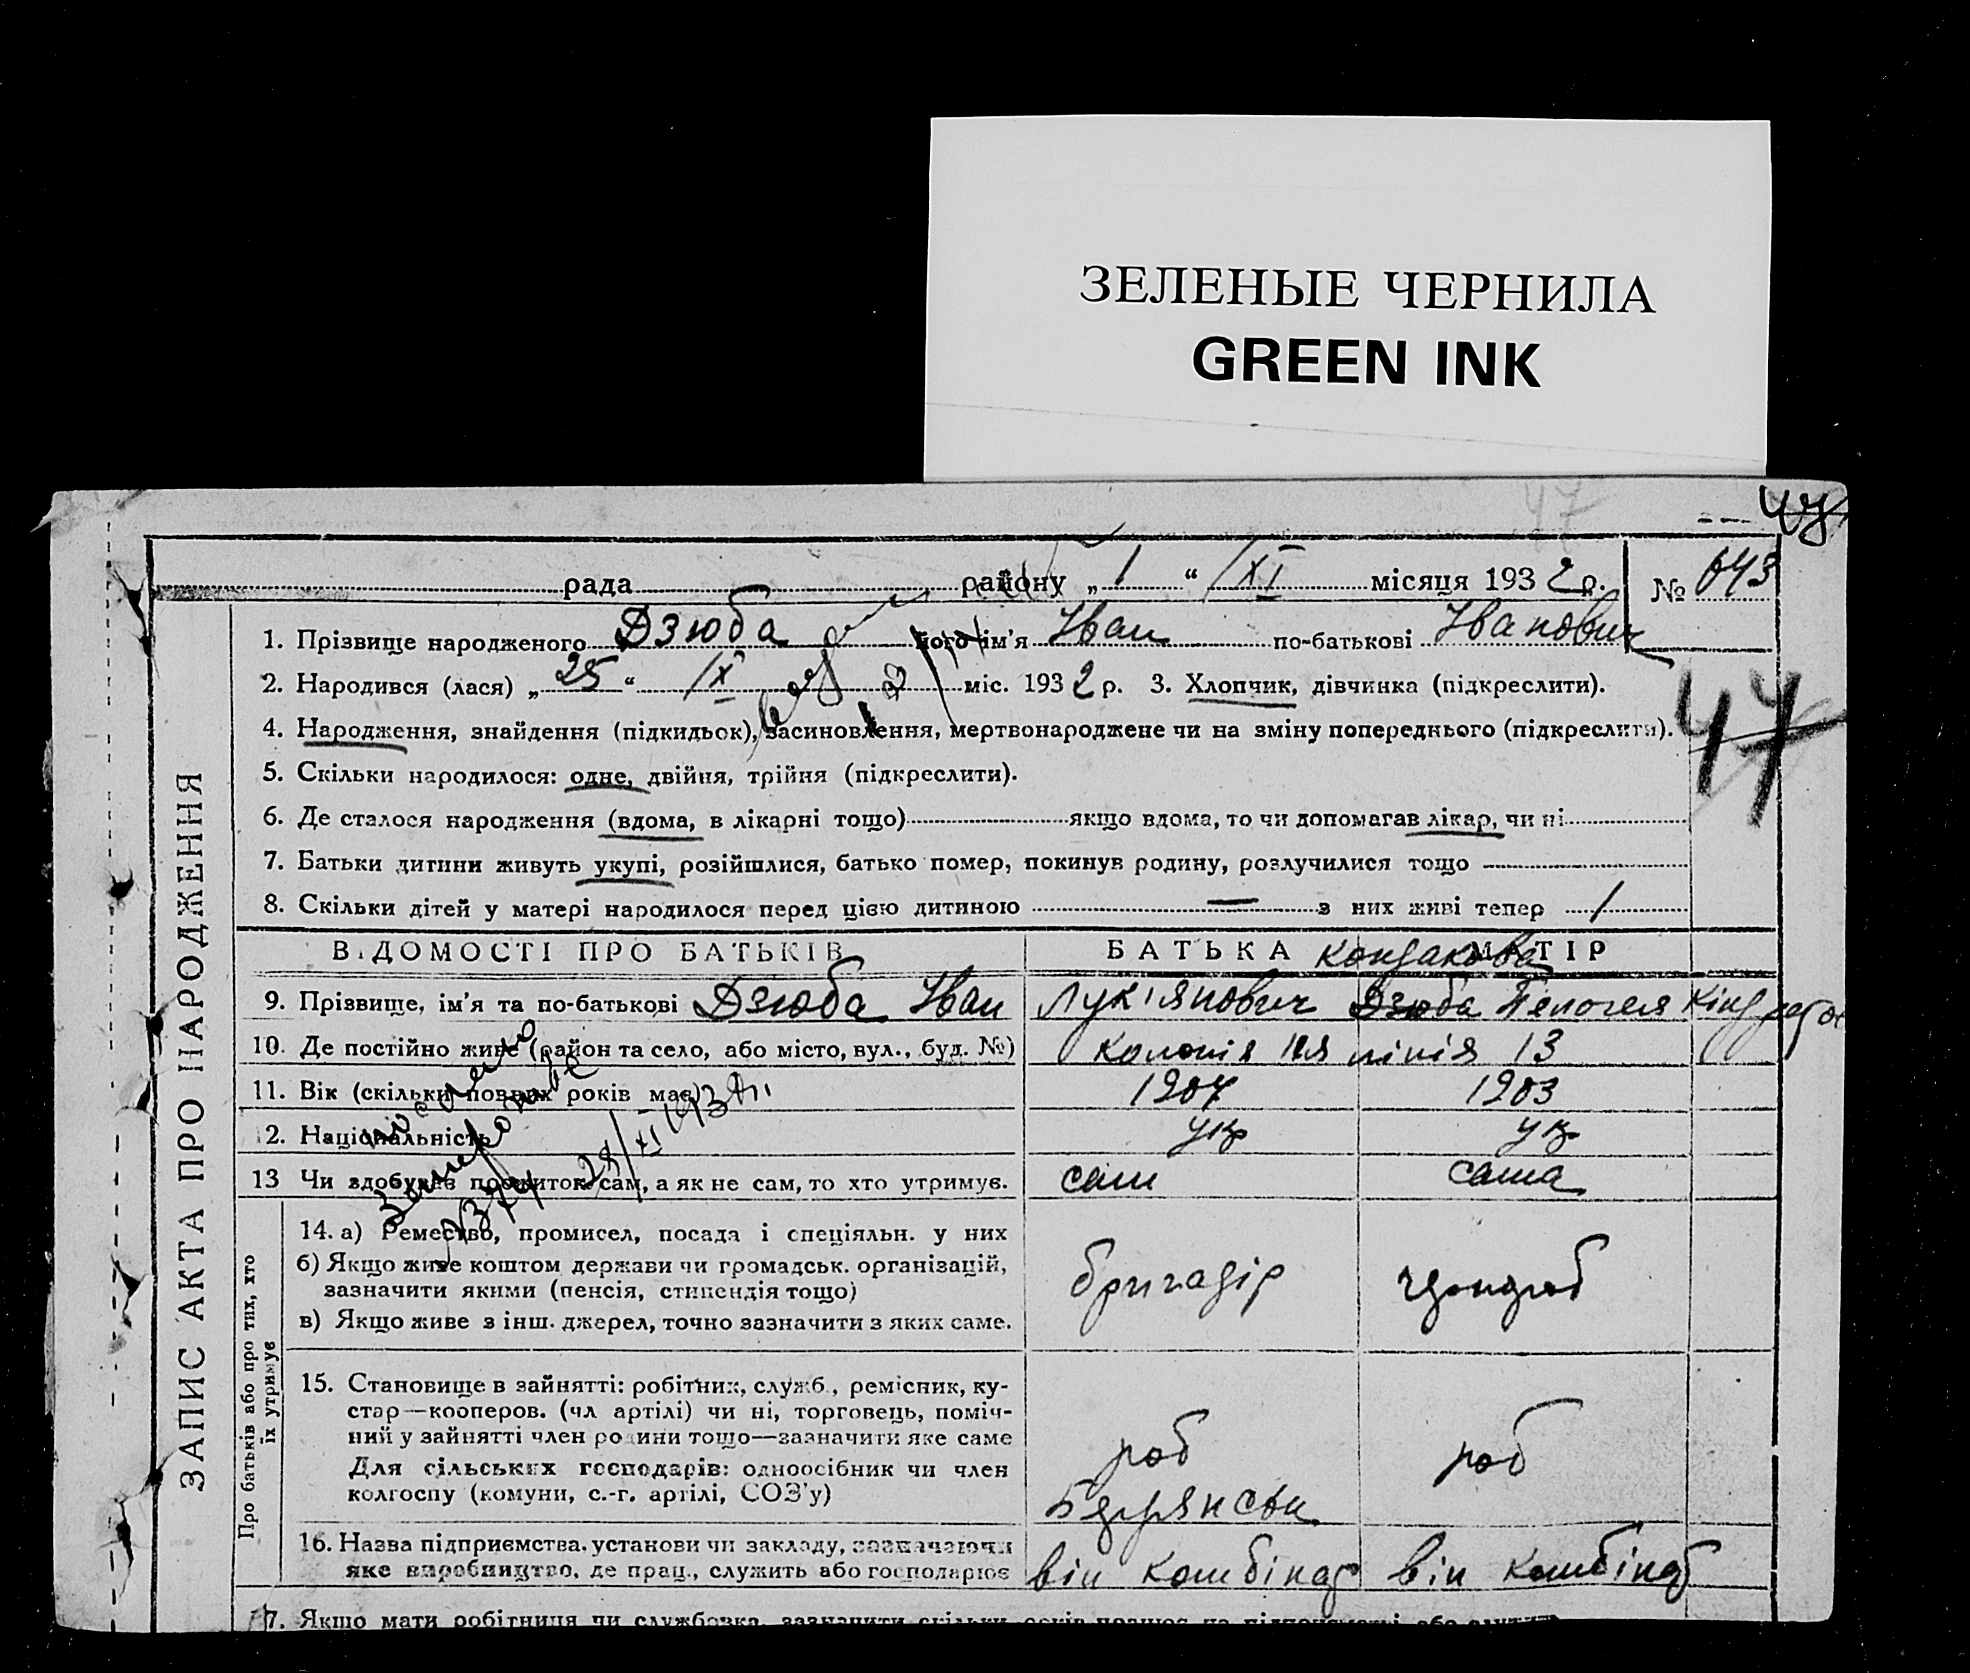 ЗЕЛЕНЫЕ ЧЕРНИЛА
GREEN INK
47
47
рада району „1“ XI місяця 1932 р. № 643
1. Прізвище народженого Дзюба його ім'я Іван по-батькові Іванович
2. Народився (лася) „25“ IX міс. 1932 р. 3. Хлопчик, дівчинка (підкреслити).
4. Народження, знайдення (підкидьок), засиновлення, мертвонароджене чи на зміну попереднього (підкреслити).
47
5. Скільки народилося: одне, двійня, трійня (підкреслити).
6. Де сталося народження (вдома, в лікарні тощо) якщо вдома, то чи допомагав лікар, чи ні
7. Батьки дитини живуть укупі, розійшлися, батько помер, покинув родину, розлучилися тощо
8. Скільки дітей у матері народилося перед цією дитиною — з них живі тепер 1
ВІДОМОСТІ ПРО БАТЬКІВ БАТЬКА МАТІР
Кондакова
9. Прізвище, ім'я та по-батькові Дзюба Іван Лук'янович Дзюба Пелогея
10. Де постійно живе (район та село, або місто, вул., буд. №) Колонія лінія 13
11. Вік (скільки повних років має) 1907 1903
12. Національність укр укр
13 Чи здобував прожиток сам, а як не сам, то хто утримує. сам сама
28/XI 193
14. а) Ремество, промисел, посада і спеціяльн. у них
б) Якщо живе коштом держави чи громадськ. організацій,
зазначити якими (пенсія, стипендія тощо)
в) Якщо живе з інш. джерел, точно зазначити з яких саме.
бригадір
15. Становище в зайнятті: робітник, служб., ремісник, ку-
стар—кооперов. (чл артілі) чи ні, торговець, поміч-
ний у зайнятті член родини тощо—зазначити яке саме
Для сільських господарів: одноосібник чи член
колгоспу (комуни, с.-г. артілі, СОЗ'у)
роб роб
16. Назва підприємства, установи чи закладу, зазначаючи
яке виробництво, де прац., служить або господарює
він комбінат він комбінат
17. Якщо мати робітниця чи службовка, зазначити скільки років працює на підприємстві або
ЗАПИС АКТА ПРО НАРОДЖЕННЯ
Про батьків або про тих, хто
їх утримує